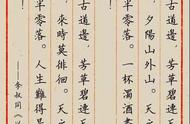 古道邊，芳草碧連天
夕陽山外山。天之
半零落。一杯濁酒
古道邊，芳草碧連天
來時莫徘徊。天之
半零落。人生難得
——李叔同《